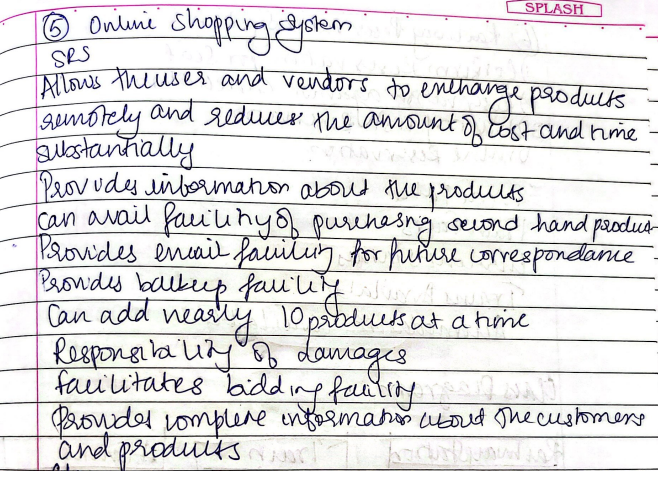 SPLASH
⑤ Online Shopping System
SRS
Allows the user and vendors to exchange products
remotely and reduces the amount of cost and time
substantially
Provides information about the products
can avail facility of purchasng second hand produc
Provides email facility for future correspondance
Provides backup facility
Can add nearly 10 products at a time
Responsibility of damages
facilitates bidding facility
Provides complete information about the customers
and products